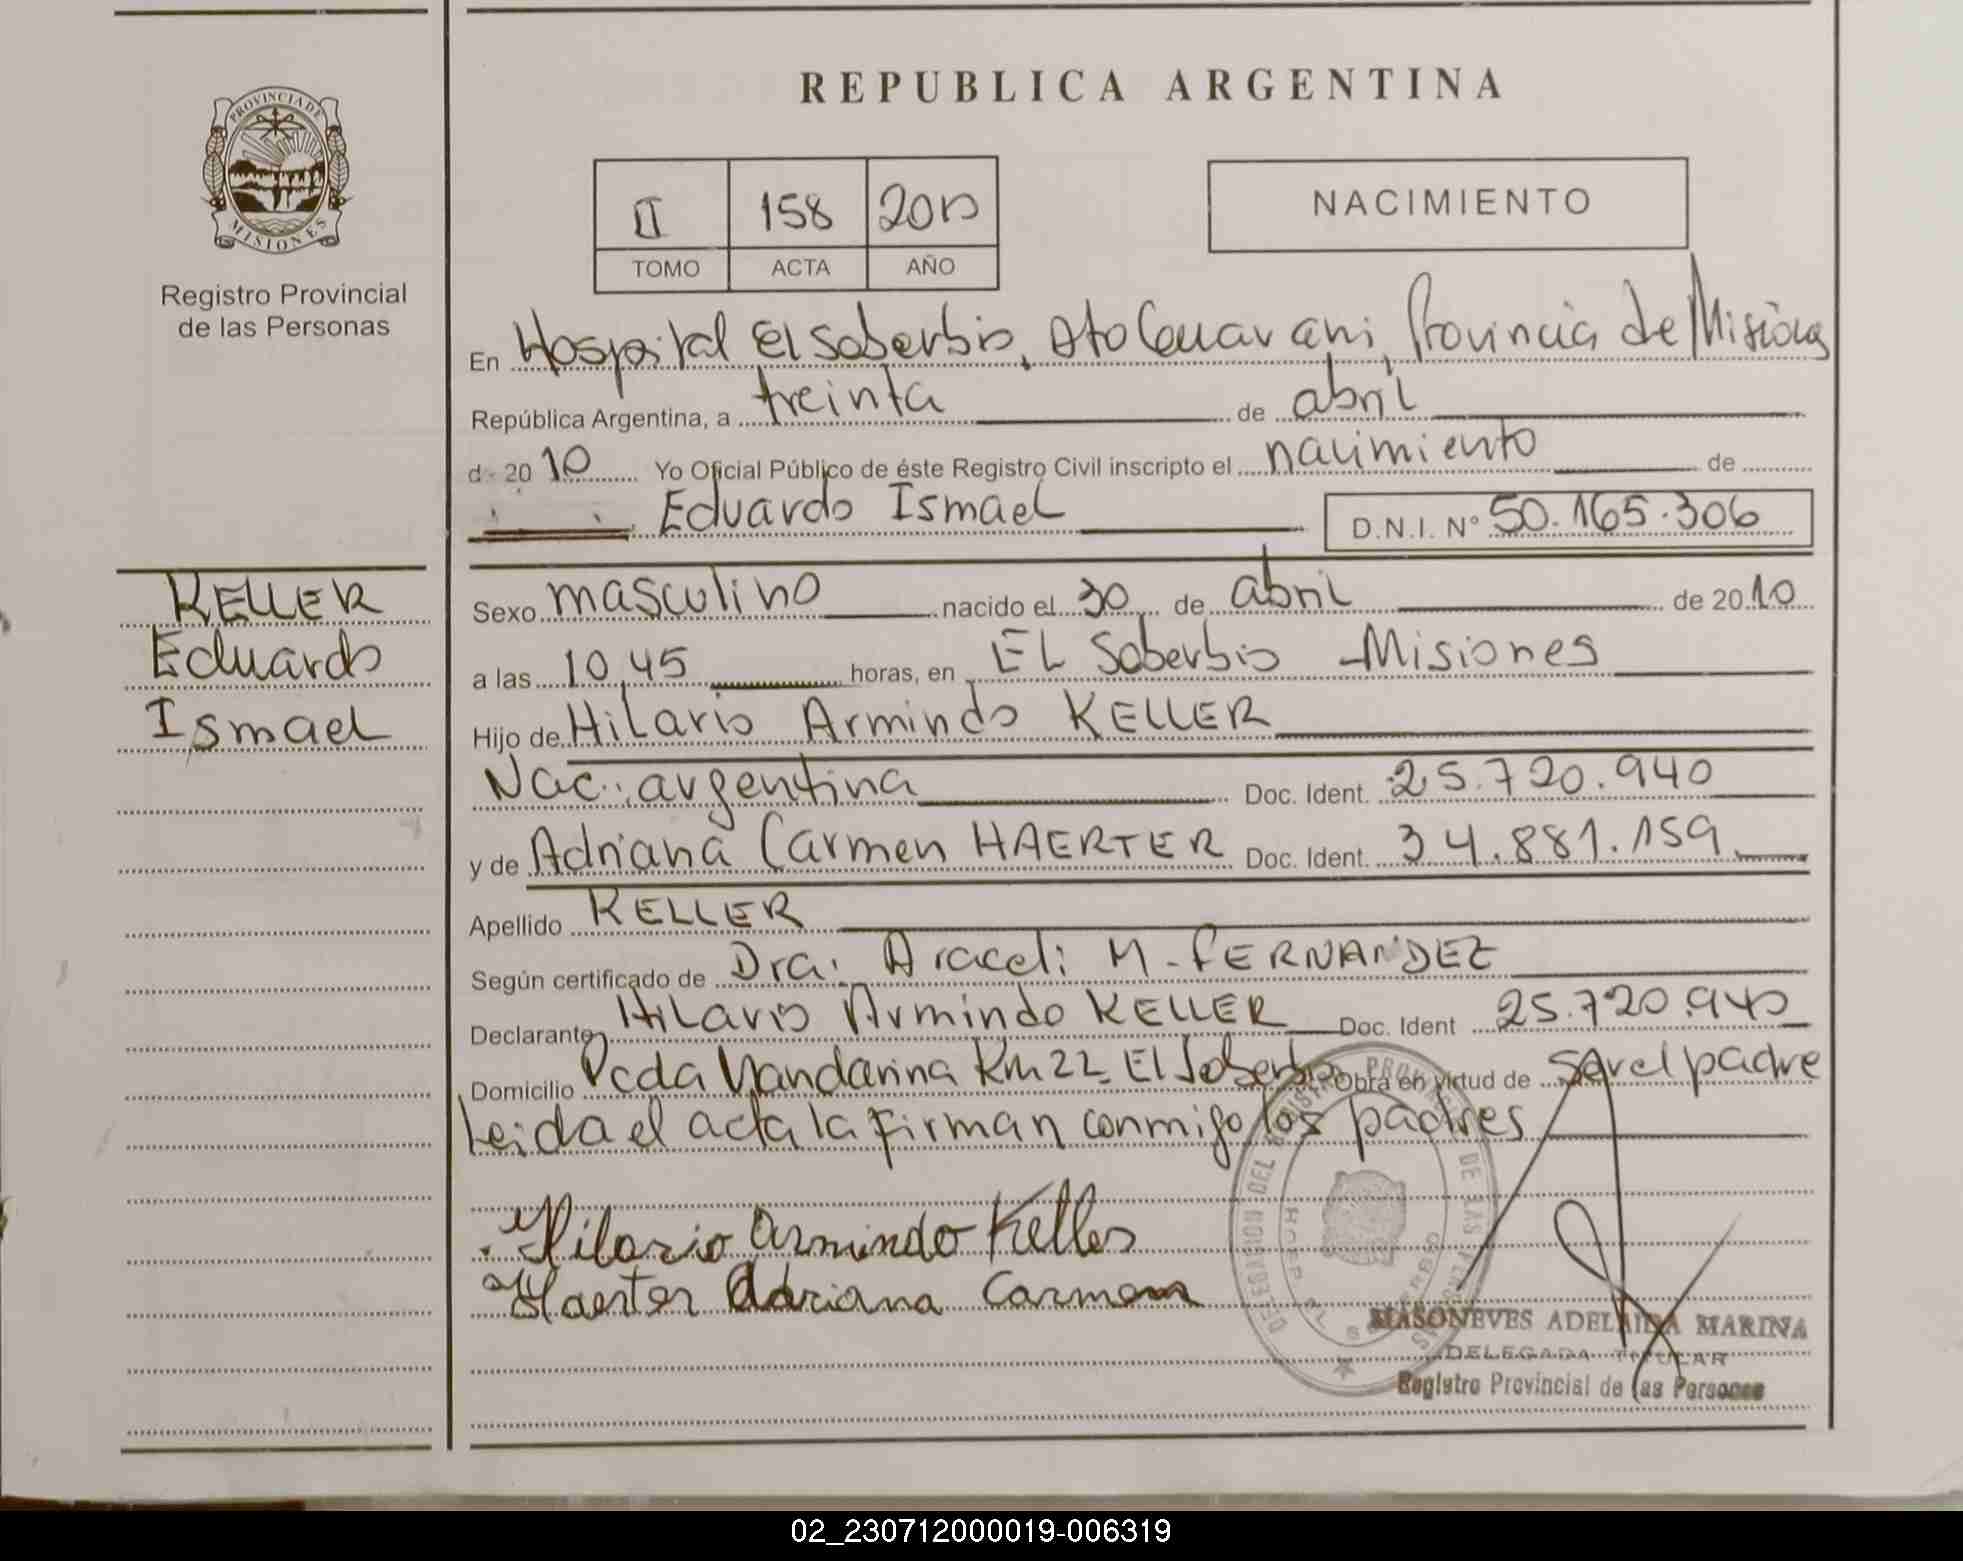 REPUBLICA ARGENTINA
PROVINCIA DE MISIONES
Registro Provincial
de las Personas
II 158 2010
TOMO ACTA AÑO
NACIMIENTO
En Hospital El Soberbio, Dto Guarani, Provincia de Misiones
República Argentina, a treinta de abril
d 2010 Yo Oficial Público de éste Registro Civil inscripto el nacimiento de
Eduardo Ismael D.N.I. N° 50.165.306
KELLER
Eduardo
Ismael
Sexo masculino nacido el 30 de abril de 2010
a las 10,45 horas, en El Soberbio - Misiones
Hijo de Hilario Armindo KELLER
Nac: argentina Doc. Ident. 25.720.940
y de Adriana Carmen HAERTER Doc. Ident. 34.881.159
Apellido KELLER
Según certificado de Dra. Araceli M. FERNANDEZ
Declarante Hilario Armindo KELLER Doc. Ident 25.720.940
Domicilio Pcda Mandarina Km 22 El Soberbio Obra en virtud de ser el padre
Leida el acta la firman conmigo los padres
Hilario Armindo Keller
Haerter Adriana Carmen
MASONEVES ADELAIDA MARINA
DELEGADA TITULAR
Registro Provincial de las Personas
02_230712000019-006319